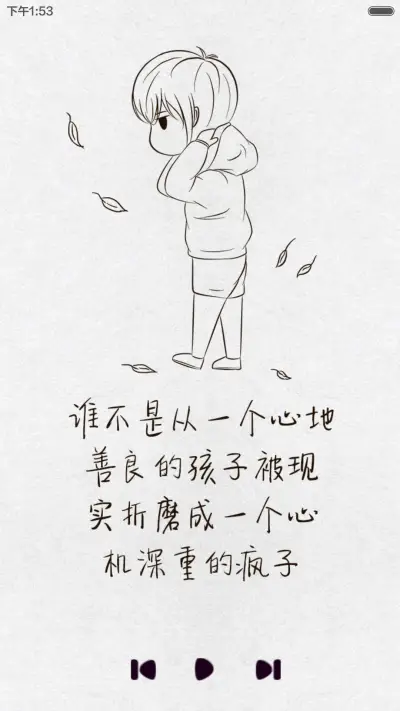 下午1:53
谁不是从一个心地
善良的孩子被现
实折磨成一个心
机深重的疯子